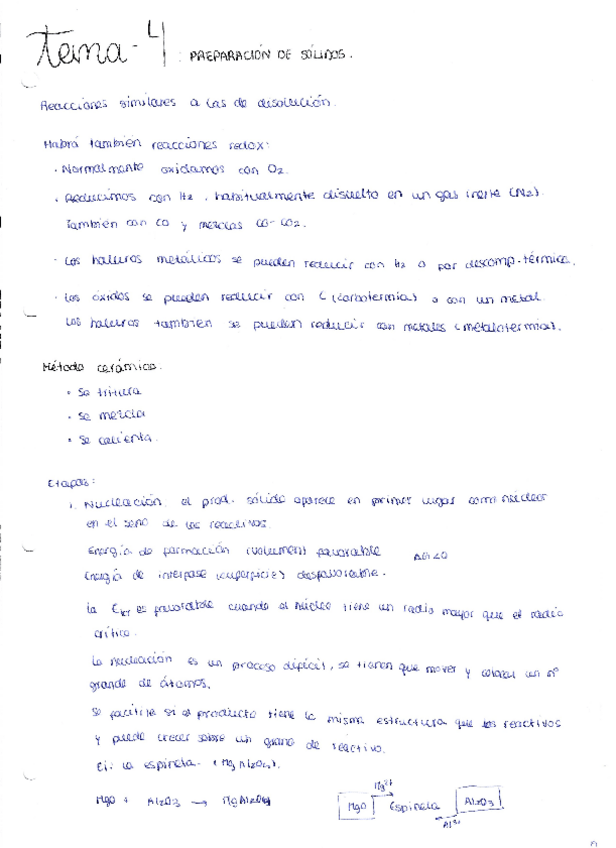 tema - 4 : PREPARACIÓN DE SÓLIDOS.
Reacciones similares a las de disolución.
Habrá también reacciones redox:
· Normalmente oxidamos con O2.
· Reducimos con H2, habitualmente disuelto en un gas inerte (N2).
También con CO y mezclas CO-CO2.
· Los haluros metálicos se pueden reducir con H2 o por descomp. térmica.
· Los óxidos se pueden reducir con C (carbotermia) o con un metal.
Los haluros también se pueden reducir con metales (metalotermia).
Método cerámico.
· Se tritura
· Se mezcla
· Se calienta.
Etapas:
1. Nucleación: el prod. sólido aparece en primer lugar como núcleos
en el seno de los reactivos.
Energía de formación (volumen) favorable ΔG<0
Energía de interfase (superficie) desfavorable.
La Etot es favorable cuando el núcleo tiene un radio mayor que el radio
crítico.
La nucleación es un proceso difícil, se tienen que mover y colocar un nº
grande de átomos.
Se facilita si el producto tiene la misma estructura que los reactivos
y puede crecer sobre un grano de reactivo.
Ej: La espinela (MgAl2O4).
MgO + Al2O3 → MgAl2O4
Mg2+
MgO Espinela Al2O3
Al3+